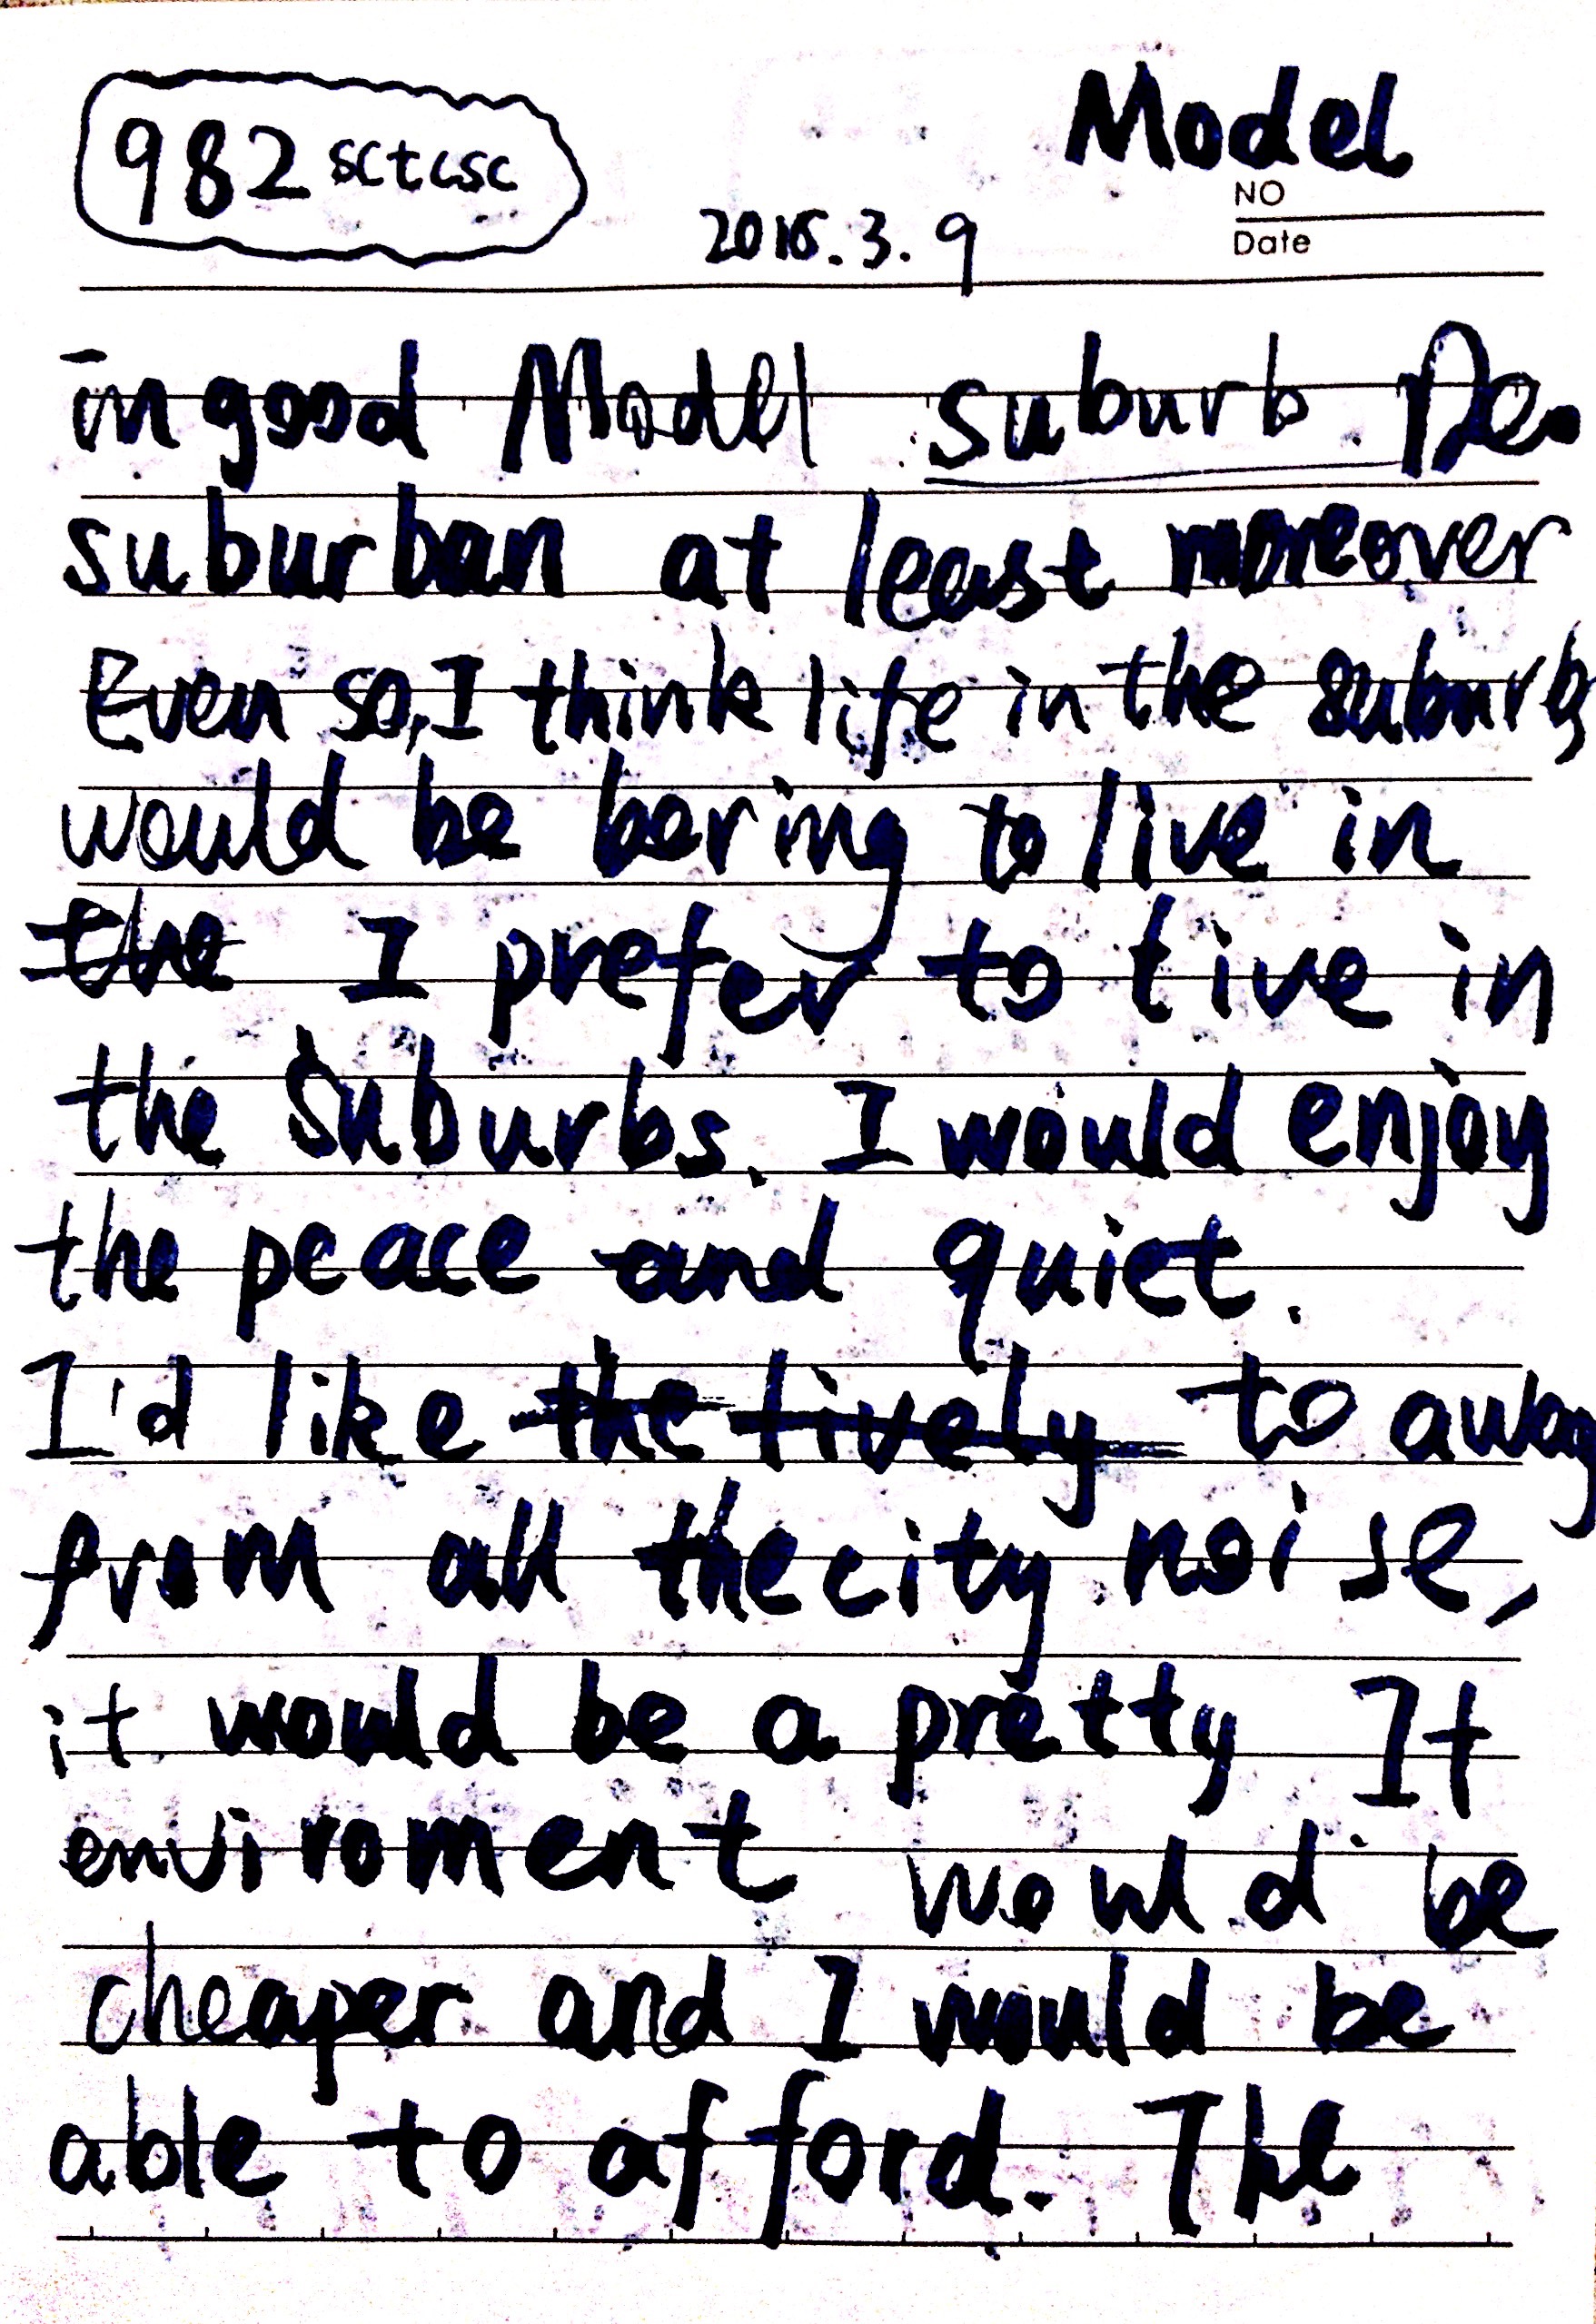 Model
982 sctcsc
NO
2016.3.9
Date
in good Model suburb De
suburban at least moreover
Even so, I think life in the suburbs
would be boring to live in
the I prefer to live in
the suburbs. I would enjoy
the peace and quiet.
I'd like the lively to away
from all the city noise,
it would be a pretty It
enviroment would be
cheaper and I would be
able to afford. The